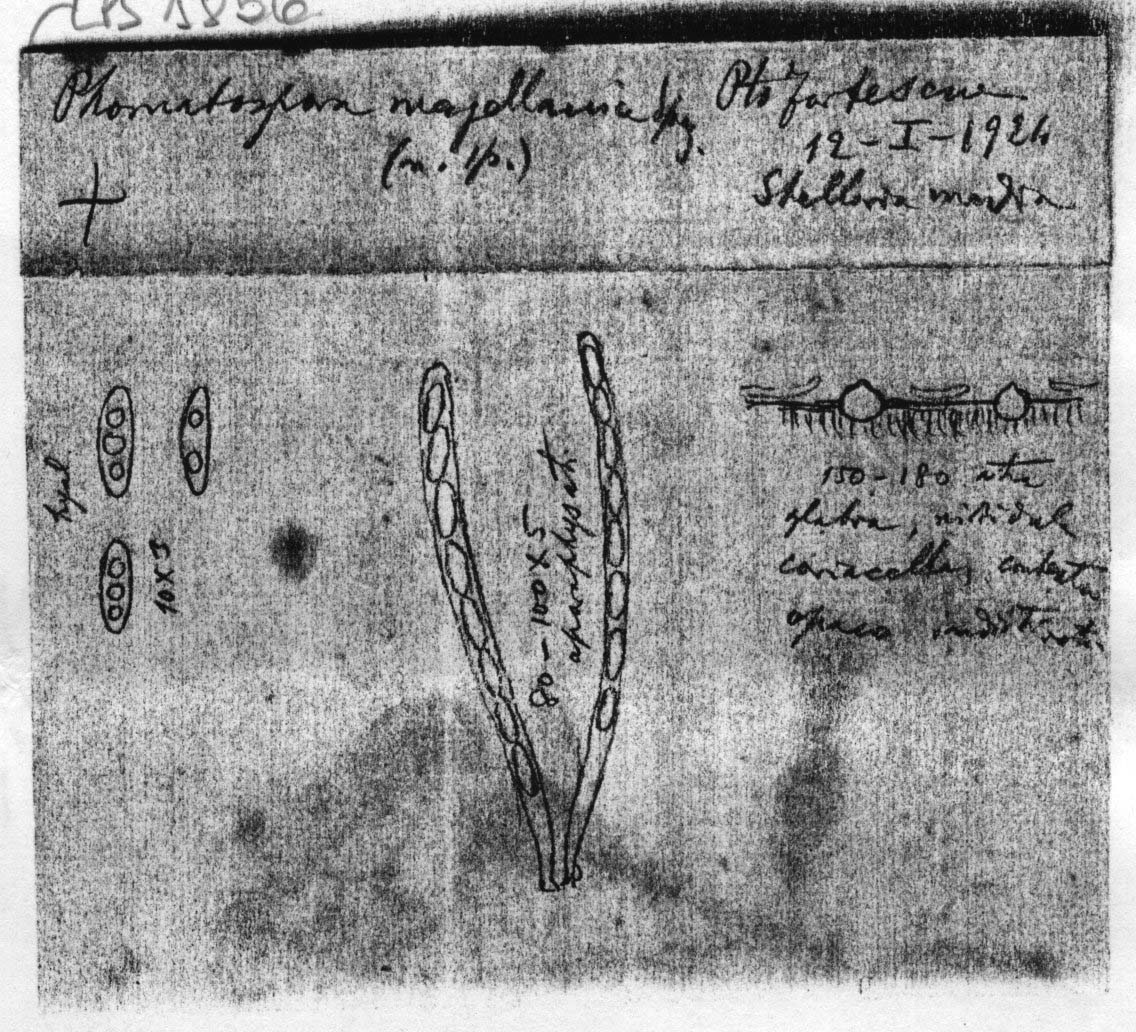 LPS 1856
Phomatospora magellanica Speg.
(n. sp.)
Pto Fortescue
12-I-1924
Stellaria media
hyal.
10x3
80-100x5
aparaphysat.
150-180
glabra, nitidul
coriacella, contextu
opaco indistincto